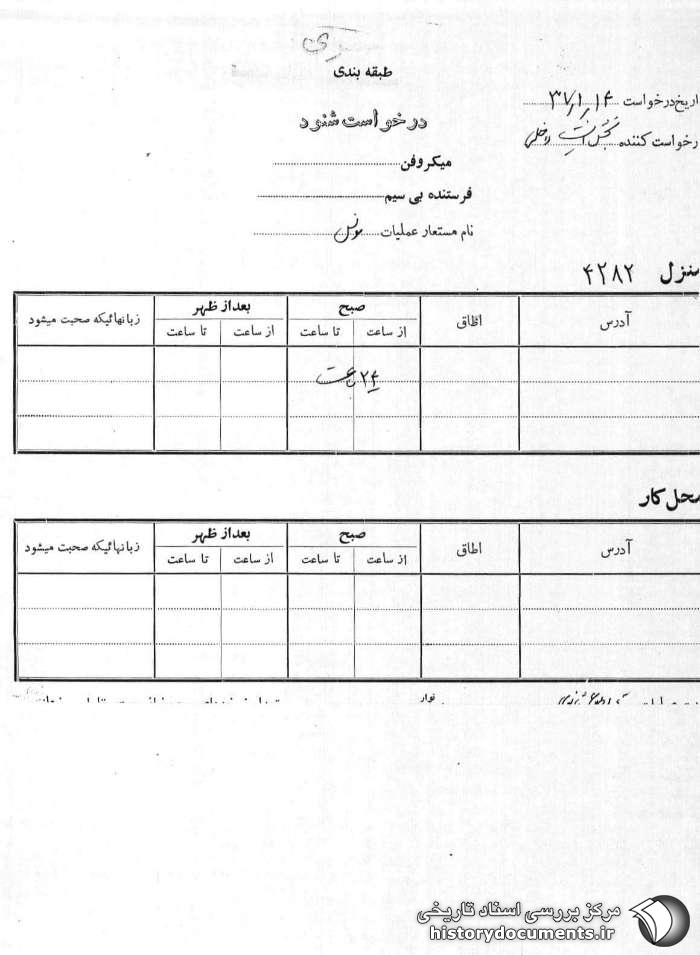 سری
طبقه بندی
تاریخ درخواست ۳۷/۱/۱۴
درخواست شنود
درخواست کننده بخش امنیت داخلی
میکروفن
فرستنده بی سیم
نام مستعار عملیات مونس
منزل ۴۲۸۲
آدرس اطاق صبح بعداز ظهر زبانهائیکه صحبت میشود
از ساعت تا ساعت از ساعت تا ساعت
۲۴ ساعت
محل کار
آدرس اطاق صبح بعداز ظهر زبانهائیکه صحبت میشود
از ساعت تا ساعت از ساعت تا ساعت
نوار
مرکز بررسی اسناد تاریخی
historydocuments.ir